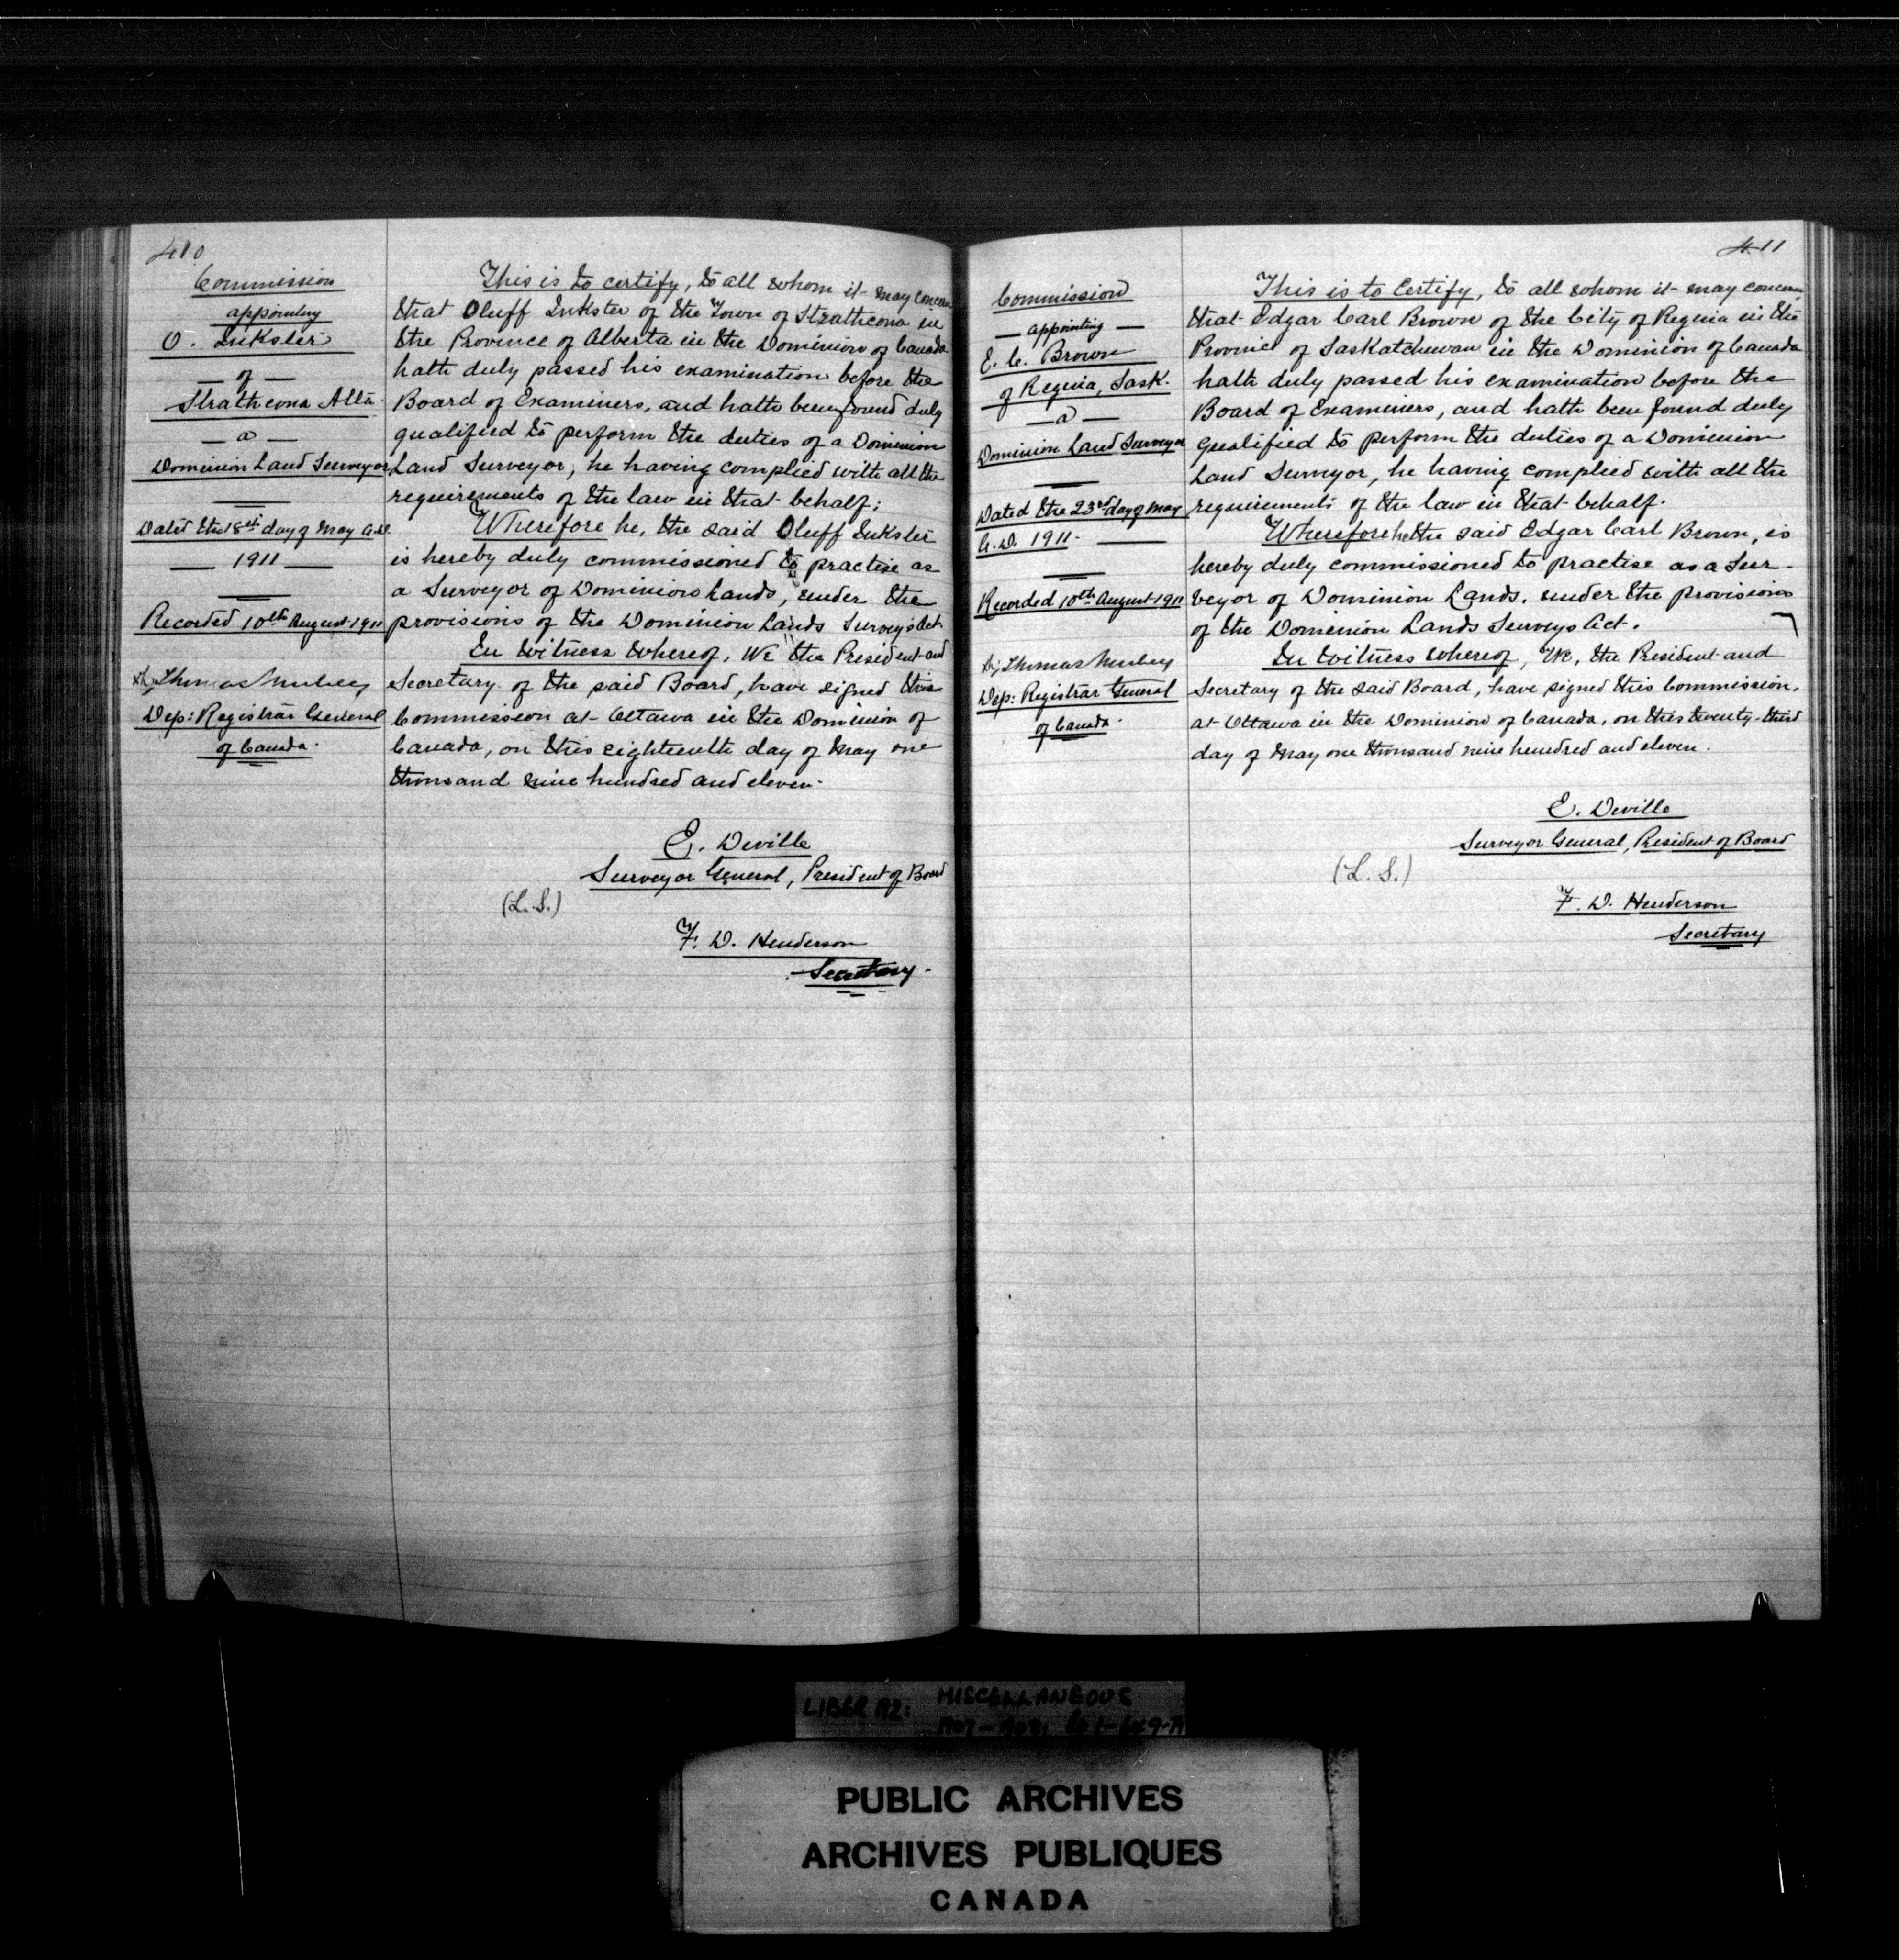 410
Commission
appointing
O. Inkster
— of —
Strathcona Alta.
— a —
Dominion Land Surveyor
Dated the 18th day of May A.D.
— 1911 —
Recorded 10th August 1911
Thomas Mulvey
Dep: Registrar General
of Canada.
This is to certify, to all whom it may concern
that Oluff Inkster of the Town of Strathcona in
the Province of Alberta in the Dominion of Canada
hath duly passed his examination before the
Board of Examiners, and hath been found duly
qualified to perform the duties of a Dominion
Land Surveyor, he having complied with all the
requirements of the law in that behalf;
Wherefore he, the said Oluff Inkster
is hereby duly commissioned to practise as
a Surveyor of Dominion Lands, under the
provisions of the Dominion Lands Surveys Act.
In Witness Whereof, We the President and
Secretary of the said Board, have signed this
Commission at Ottawa in the Dominion of
Canada, on this eighteenth day of May one
thousand nine hundred and eleven.
E. Deville
Surveyor General, President of Board
(L.S.)
F. D. Henderson
Secretary.
411
Commission
— appointing —
E. C. Brown
of Regina, Sask.
— a —
Dominion Land Surveyor
Dated the 23rd day of May
A.D. 1911.
Recorded 10th August 1911
Thomas Mulvey
Dep: Registrar General
of Canada.
This is to Certify, to all whom it may concern,
that Edgar Carl Brown of the City of Regina in the
Province of Saskatchewan in the Dominion of Canada
hath duly passed his examination before the
Board of Examiners, and hath been found duly
qualified to perform the duties of a Dominion
Land Surveyor, he having complied with all the
requirements of the law in that behalf.
Wherefore he the said Edgar Carl Brown, is
hereby duly commissioned to practise as a Sur-
veyor of Dominion Lands, under the provisions
of the Dominion Lands Surveys Act.
In Witness Whereof, We, the President and
Secretary of the said Board, have signed this Commission,
at Ottawa in the Dominion of Canada, on this twenty-third
day of May one thousand nine hundred and eleven.
E. Deville
Surveyor General, President of Board
(L.S.)
F. D. Henderson
Secretary
LIBER 192: MISCELLANEOUS
PUBLIC ARCHIVES
ARCHIVES PUBLIQUES
CANADA